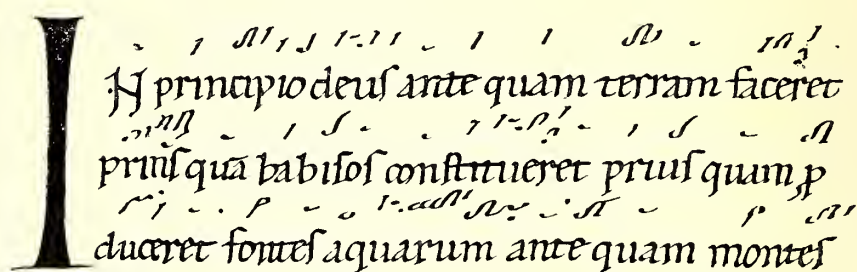 IN principio deuſ ante quam terram faceret
priuſquā babiſoſ conſtitueret priuſ quam ꝓ
duceret fonteſ aquarum ante quam monteſ